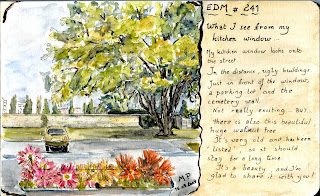 EDM # 241
What I see from my
kitchen window...
My kitchen window looks onto
the street.
In the distance, ugly buildings.
Just in front of the window,
a parking lot and the
cemetery wall.
Not really exciting... BUT,
there is also this beautiful
huge walnut tree.
It's very old and has been
"listed", so it should
stay for a long time.
It's a beauty, and I'm
glad to share it with you!
MP